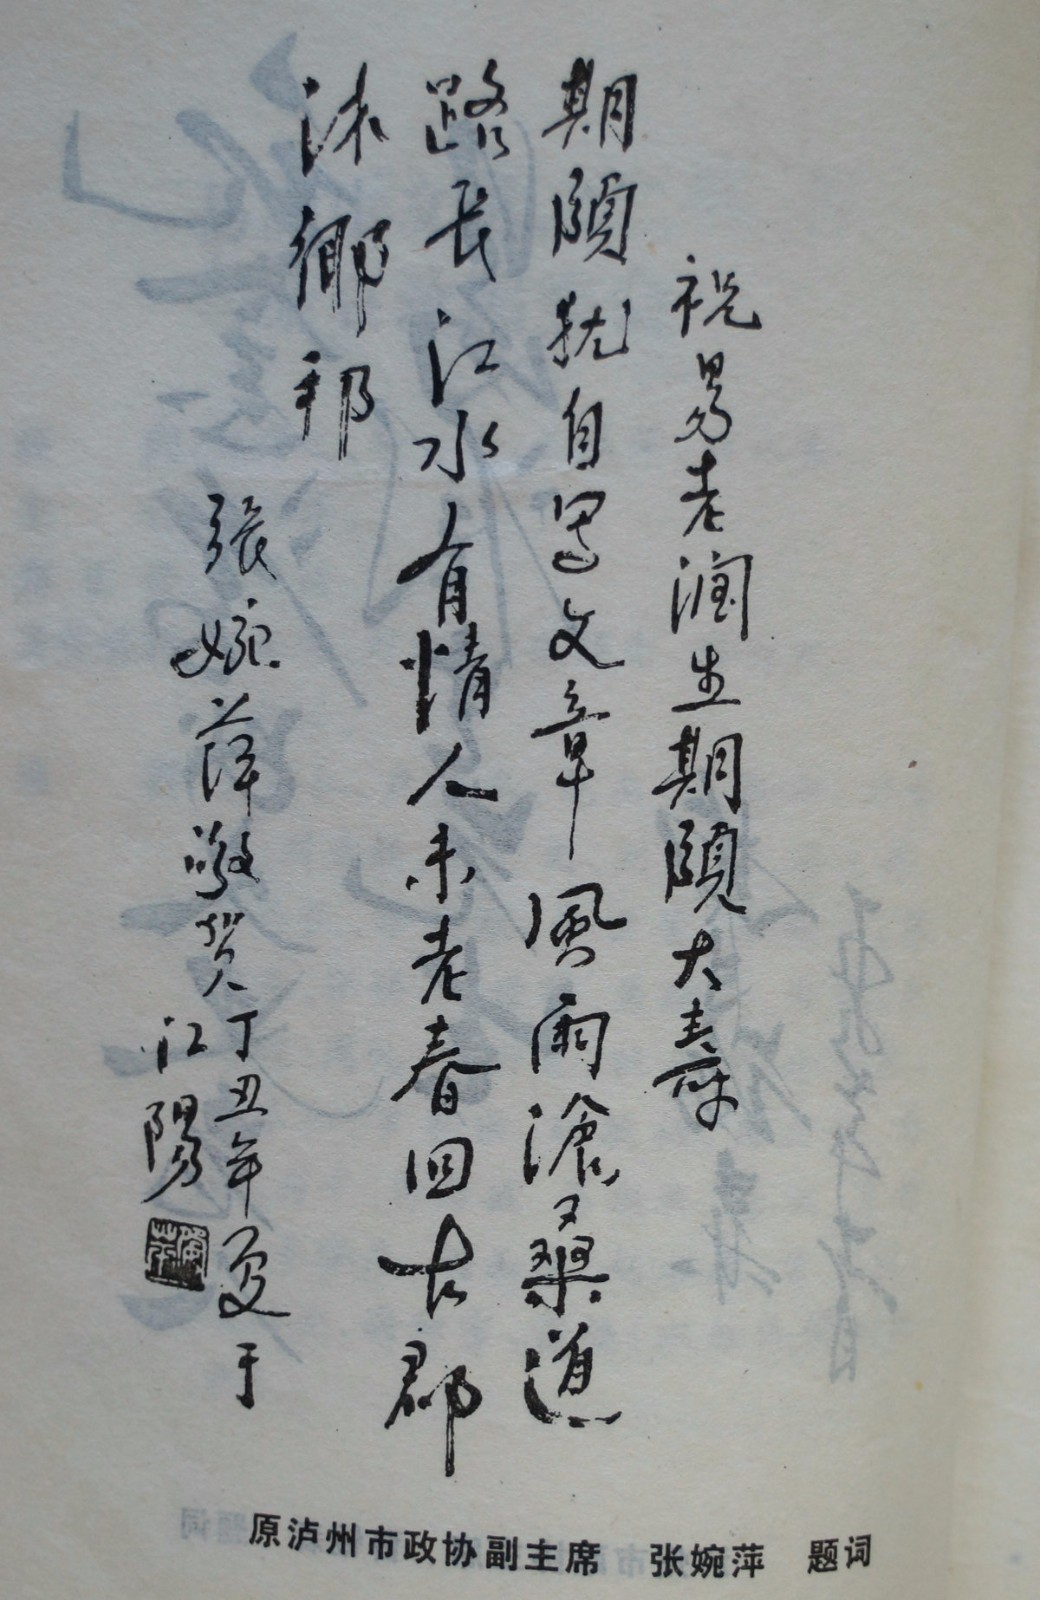 祝易老润生期頤大壽
期頤犹自写文章風雨滄桑道
路长江水有情人未老春回古郡
沐鄉邦
張婉萍敬贺丁丑年夏于
江陽
原泸州市政协副主席 张婉萍 题词